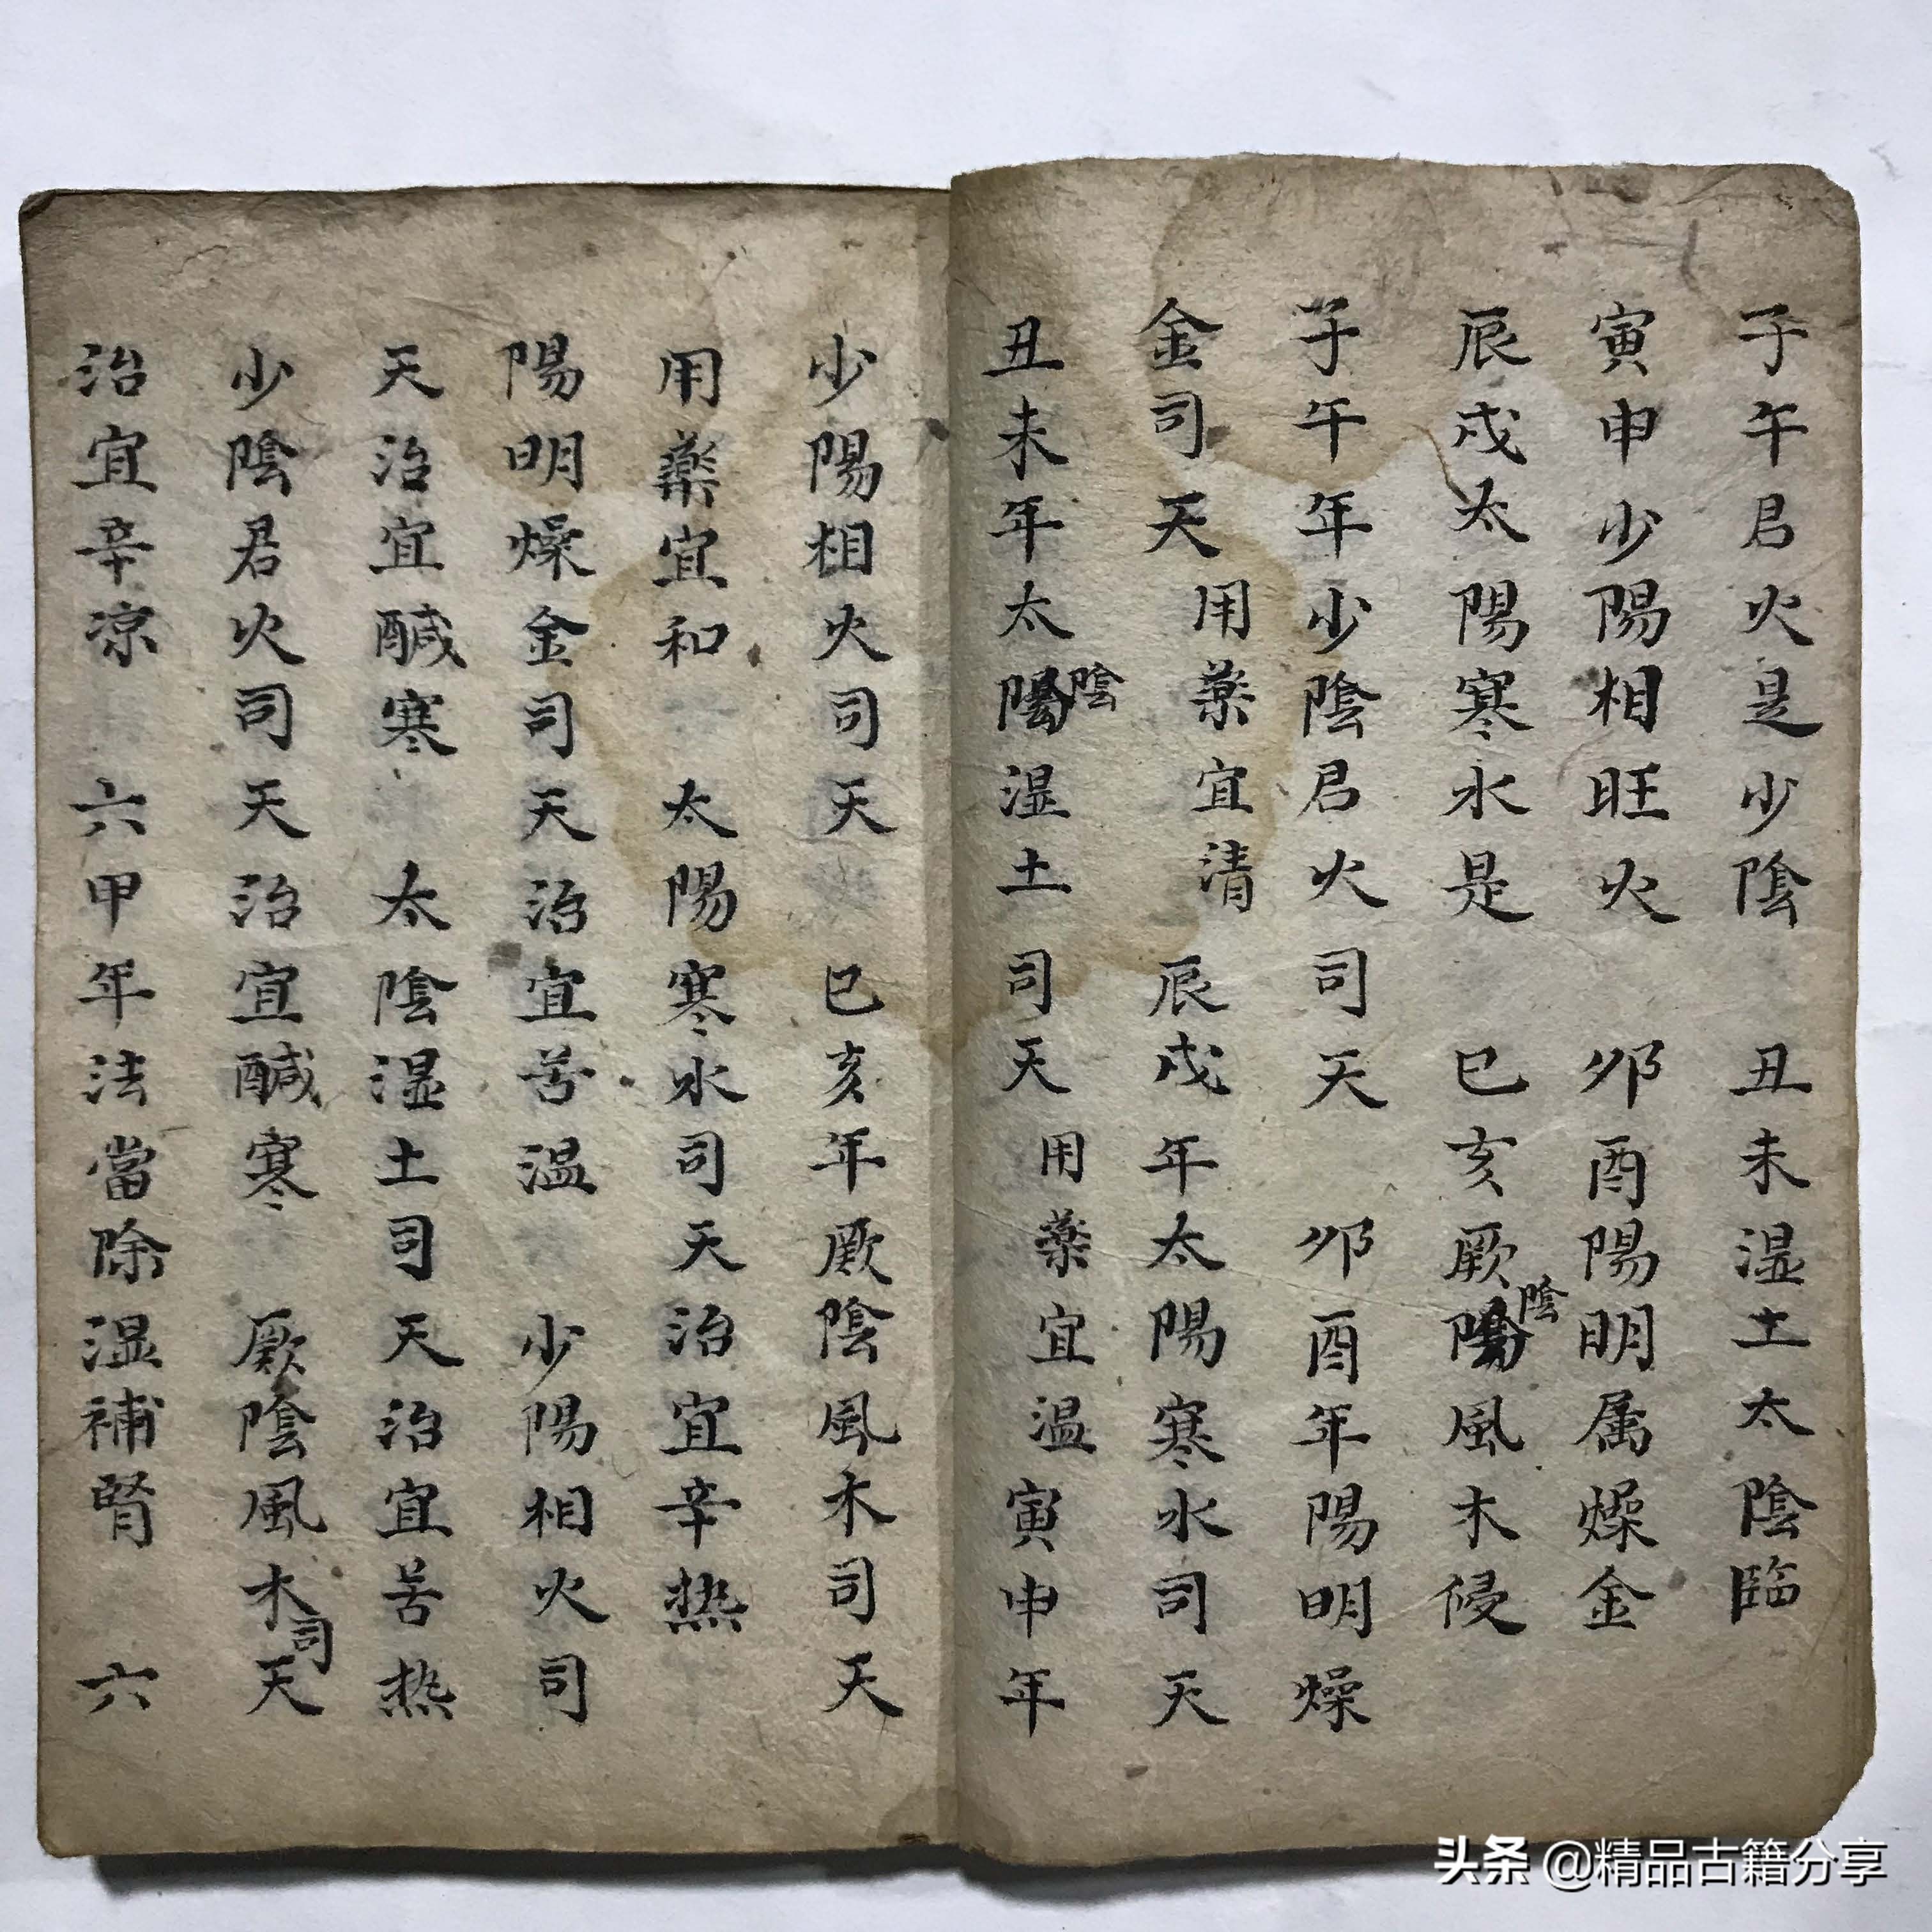 子午君火是少陰　丑未湿土太陰臨
寅申少陽相旺火　卯酉陽明属燥金
辰戌太陽寒水是　巳亥厥陰風木侵
子午年少陰君火司天　卯酉年陽明燥
金司天　用藥宜清　辰戌年太陽寒水司天
丑未年太陰湿土司天　用藥宜温　寅申年
少陽相火司天　巳亥年厥陰風木司天
用藥宜和　太陽寒水司天治宜辛热
陽明燥金司天治宜苦温　少陽相火司
天治宜醎寒　太陰湿土司天治宜苦热
少陰君火司天治宜醎寒　厥陰風木司天
治宜辛凉　六甲年法當除湿補腎　六
头条 @精品古籍分享